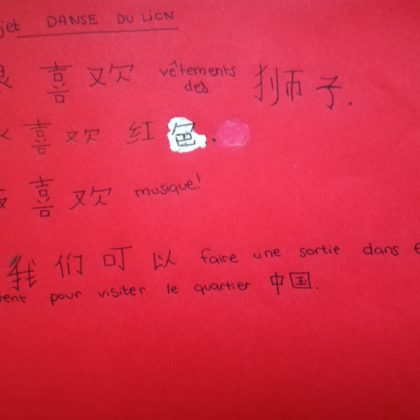 jet DANSE DU LION
很 喜 欢 vêtements des 狮子.
喜 欢 红 色.
喜 欢 musique!
我们可以 faire une sortie dans
pour visiter le quartier 中国.